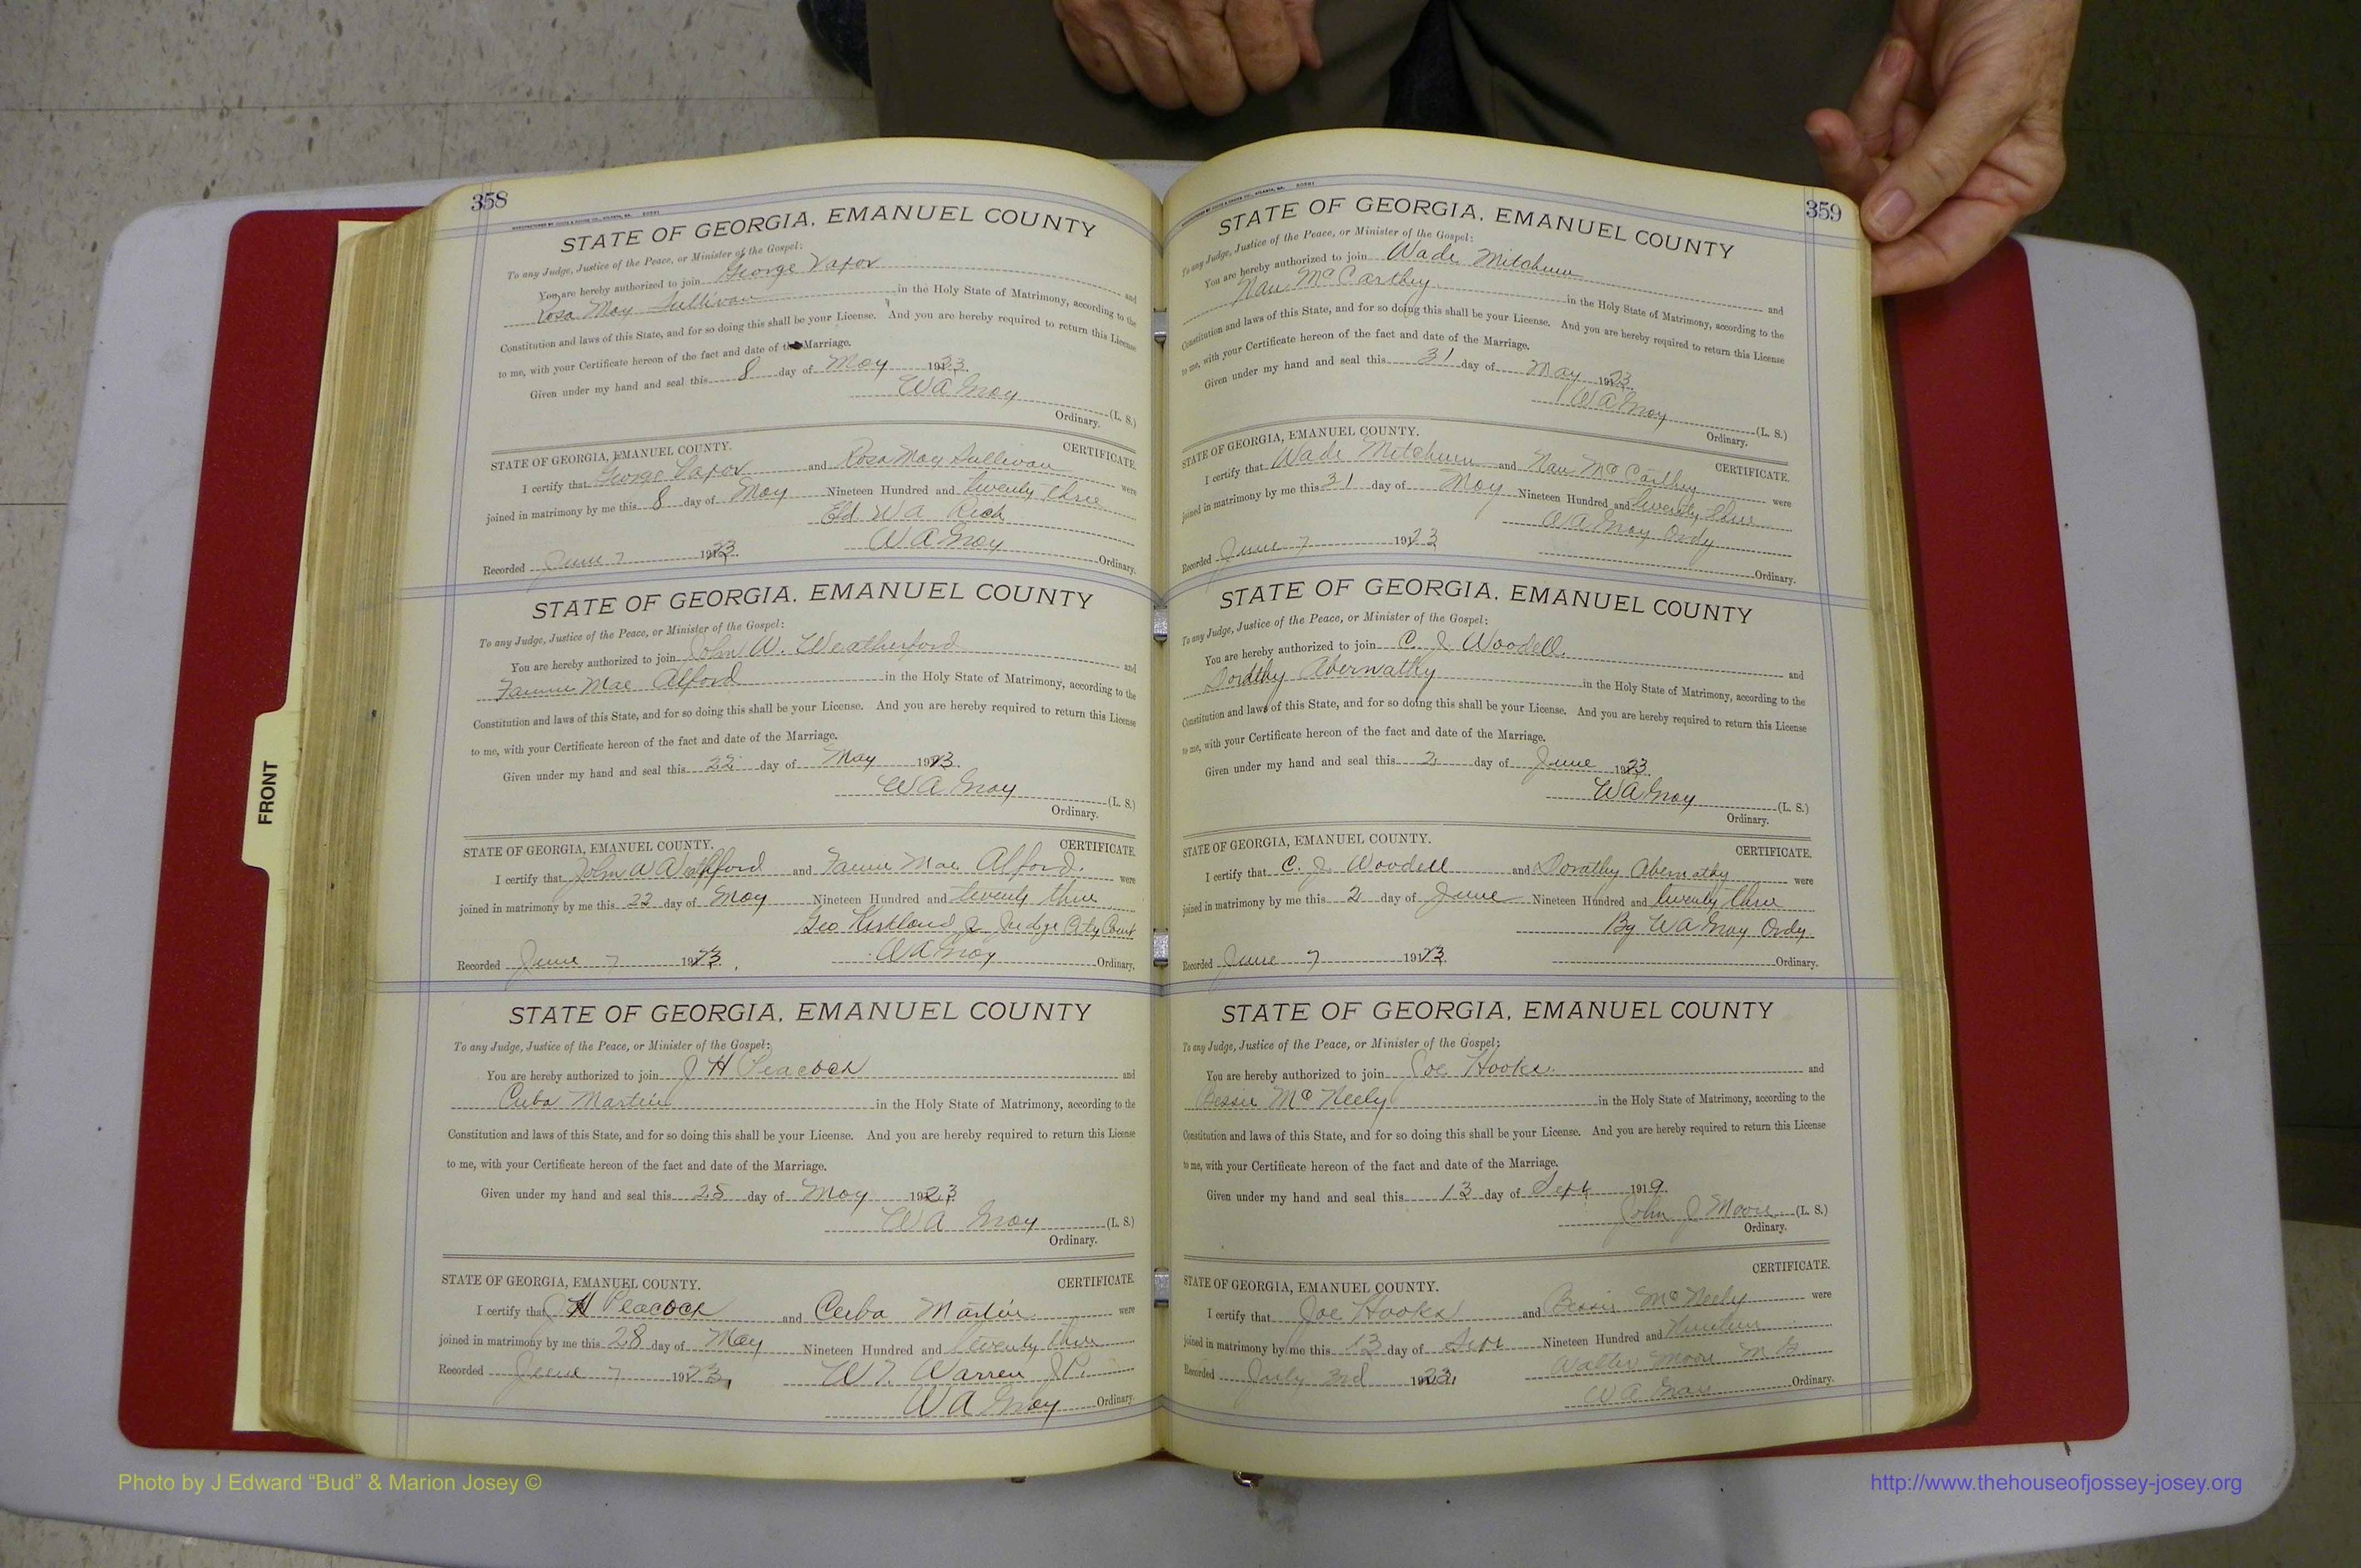 358
STATE OF GEORGIA, EMANUEL COUNTY
To any Judge, Justice of the Peace, or Minister of the Gospel:
You are hereby authorized to join George and
Rosa May Sullivan in the Holy State of Matrimony, according to the
Constitution and laws of this State, and for so doing this shall be your License. And you are hereby required to return this License
to me, with your Certificate hereon of the fact and date of the Marriage.
Given under my hand and seal this 8 day of May 1923
W A Gray (L. S.)
Ordinary.
STATE OF GEORGIA, EMANUEL COUNTY. CERTIFICATE.
I certify that George and Rosa May Sullivan were
joined in matrimony by me this 8 day of May Nineteen Hundred and twenty three
Eld W A Rich
Recorded June 7 1923 W A Gray Ordinary.
STATE OF GEORGIA, EMANUEL COUNTY
To any Judge, Justice of the Peace, or Minister of the Gospel:
You are hereby authorized to join John W. Weatherford and
Fannie Mae Alford in the Holy State of Matrimony, according to the
Constitution and laws of this State, and for so doing this shall be your License. And you are hereby required to return this License
to me, with your Certificate hereon of the fact and date of the Marriage.
Given under my hand and seal this 22 day of May 1923.
W A Gray (L. S.)
Ordinary.
STATE OF GEORGIA, EMANUEL COUNTY. CERTIFICATE.
I certify that John W and Fannie Mae Alford. were
joined in matrimony by me this 22 day of May Nineteen Hundred and twenty three
Geo Kirkland Jr Judge City Court
Recorded June 7 1923. W A Gray Ordinary.
STATE OF GEORGIA, EMANUEL COUNTY
To any Judge, Justice of the Peace, or Minister of the Gospel:
You are hereby authorized to join J H Peacock and
Cuba Martin in the Holy State of Matrimony, according to the
Constitution and laws of this State, and for so doing this shall be your License. And you are hereby required to return this License
to me, with your Certificate hereon of the fact and date of the Marriage.
Given under my hand and seal this 25 day of May 1923
W A Gray (L. S.)
Ordinary.
STATE OF GEORGIA, EMANUEL COUNTY. CERTIFICATE.
I certify that J H Peacock and Cuba Martin were
joined in matrimony by me this 28 day of May Nineteen Hundred and twenty three
Recorded June 7 1923 Warren J.P.
W A Gray Ordinary.
359
STATE OF GEORGIA, EMANUEL COUNTY
To any Judge, Justice of the Peace, or Minister of the Gospel:
You are hereby authorized to join Wade Mitchum and
Nan McCarthy in the Holy State of Matrimony, according to the
Constitution and laws of this State, and for so doing this shall be your License. And you are hereby required to return this License
to me, with your Certificate hereon of the fact and date of the Marriage.
Given under my hand and seal this 31 day of May 1923
W A Gray (L. S.)
Ordinary.
STATE OF GEORGIA, EMANUEL COUNTY. CERTIFICATE.
I certify that Wade Mitchum and Nan McCarthy were
joined in matrimony by me this 31 day of May Nineteen Hundred and twenty three
W A Gray Ordy
Recorded June 7 1923 Ordinary.
STATE OF GEORGIA, EMANUEL COUNTY
To any Judge, Justice of the Peace, or Minister of the Gospel:
You are hereby authorized to join C. J. Woodell and
Dorathy Abernathy in the Holy State of Matrimony, according to the
Constitution and laws of this State, and for so doing this shall be your License. And you are hereby required to return this License
to me, with your Certificate hereon of the fact and date of the Marriage.
Given under my hand and seal this 2 day of June 1923.
W A Gray (L. S.)
Ordinary.
STATE OF GEORGIA, EMANUEL COUNTY. CERTIFICATE.
I certify that C. J. Woodell and Dorathy Abernathy were
joined in matrimony by me this 2 day of June Nineteen Hundred and twenty three
By W A Gray Ordy.
Recorded June 7 1923. Ordinary.
STATE OF GEORGIA, EMANUEL COUNTY
To any Judge, Justice of the Peace, or Minister of the Gospel:
You are hereby authorized to join Joe Hooks. and
Bessie McNeely in the Holy State of Matrimony, according to the
Constitution and laws of this State, and for so doing this shall be your License. And you are hereby required to return this License
to me, with your Certificate hereon of the fact and date of the Marriage.
Given under my hand and seal this 13 day of Sept 1919.
John J Moore (L. S.)
Ordinary.
CERTIFICATE.
STATE OF GEORGIA, EMANUEL COUNTY.
I certify that Joe Hooks and Bessie McNeely were
joined in matrimony by me this 13 day of Sept Nineteen Hundred and Nineteen
Walter Moore M G
Recorded July 3rd 1923. W A Gray Ordinary.
FRONT
Photo by J Edward “Bud” & Marion Josey ©
http://www.thehouseofjossey-josey.org